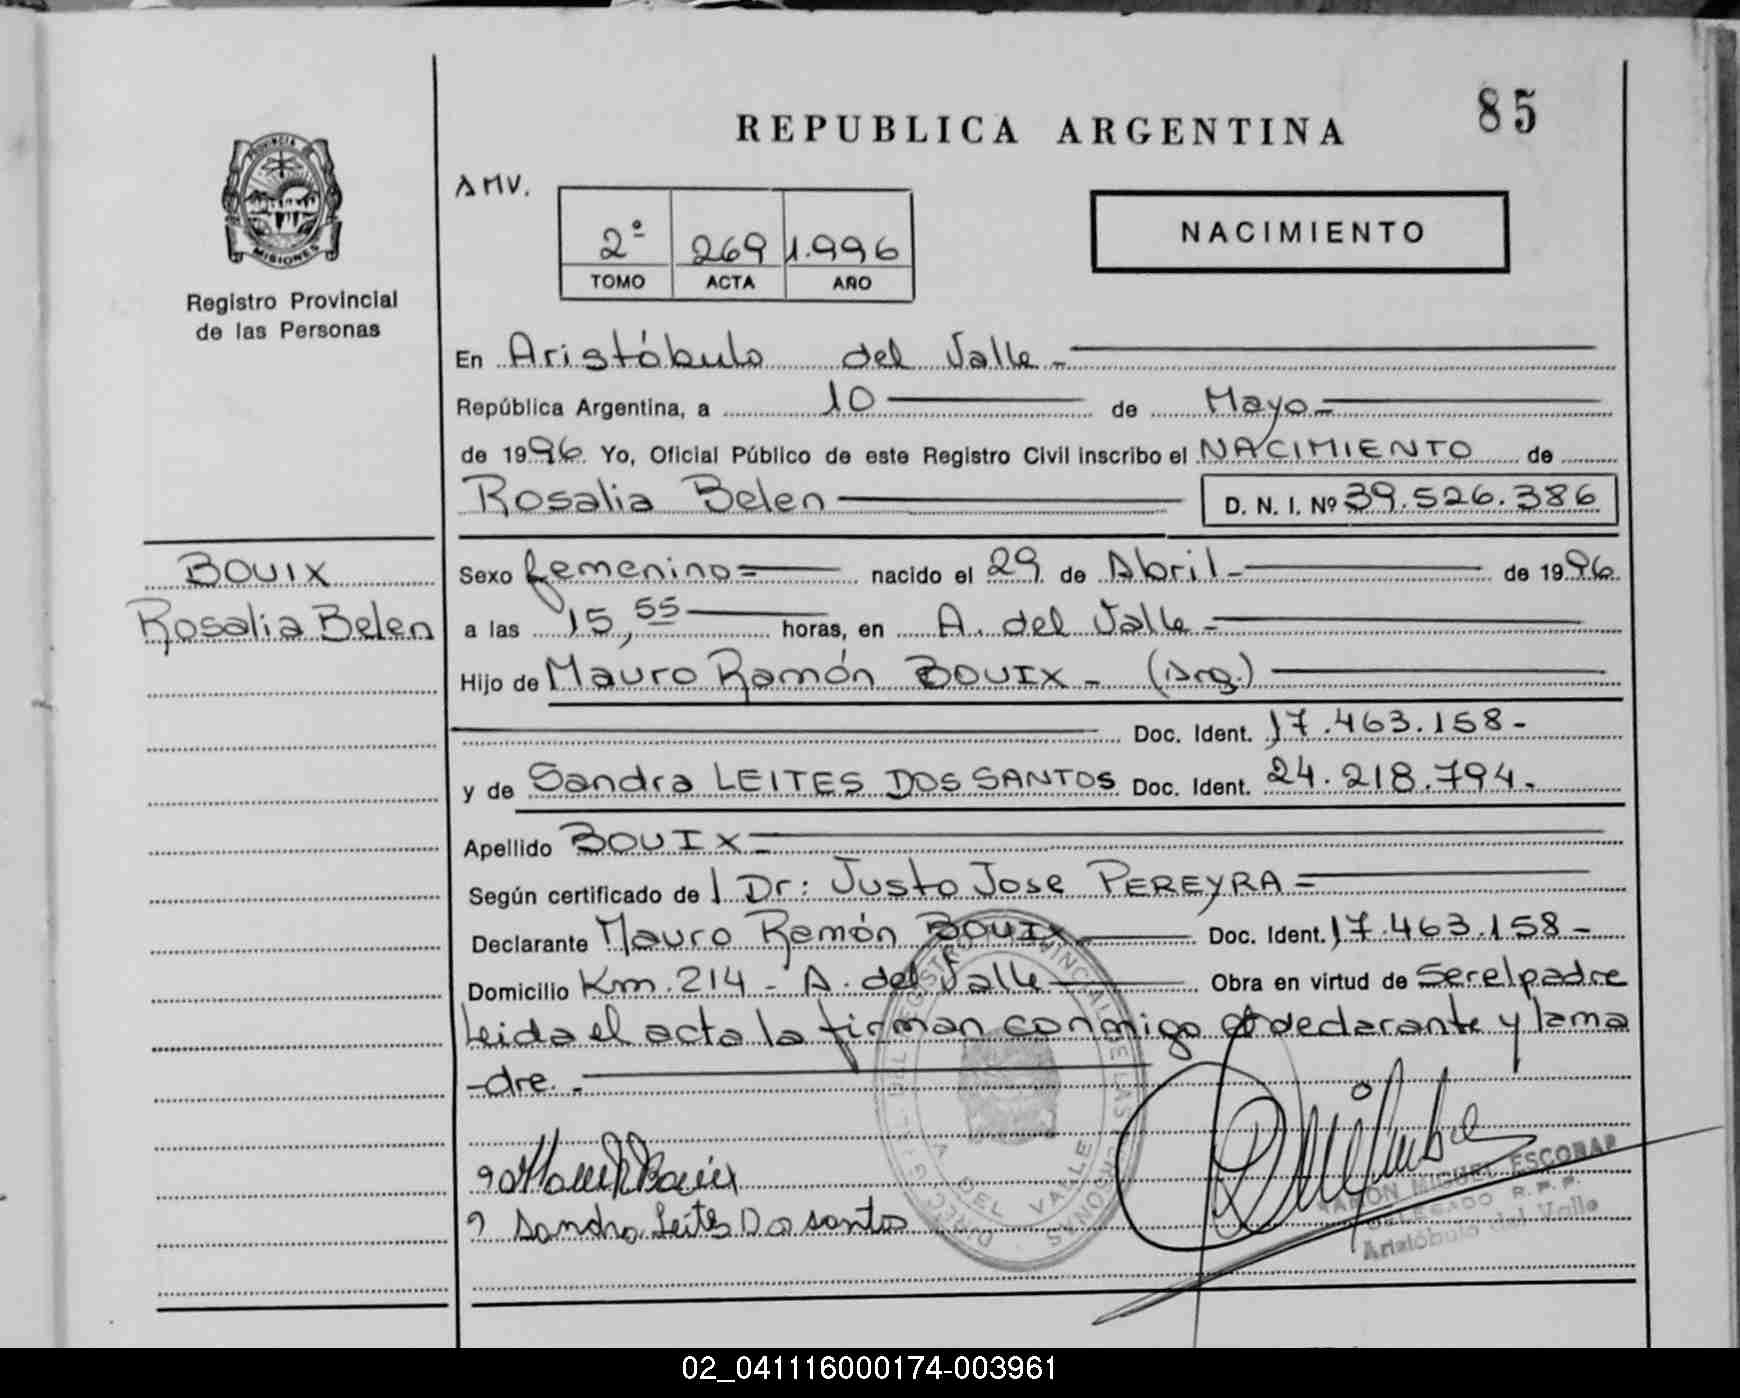 REPUBLICA ARGENTINA
85
PROVINCIA
MISIONES
Registro Provincial
de las Personas
AMV.
2º 269 1.996
TOMO ACTA AÑO
NACIMIENTO
En Aristóbulo del Valle -
República Argentina, a 10 de Mayo -
de 1996 Yo, Oficial Público de este Registro Civil inscribo el NACIMIENTO de
Rosalia Belen D. N. I. Nº 39.526.386
BOUIX
Rosalia Belen
Sexo femenino = nacido el 29 de Abril - de 1996
a las 15,55 horas, en A. del Valle -
Hijo de Mauro Ramón BOUIX - (Arg.)
Doc. Ident. 17.463.158 -
y de Sandra LEITES DOS SANTOS Doc. Ident. 24.218.794.
Apellido BOUIX -
Según certificado de l Dr: Justo Jose PEREYRA =
Declarante Mauro Ramón BOUIX Doc. Ident. 17.463.158 -
Domicilio Km. 214 - A. del Valle Obra en virtud de Ser el padre
Leida el acta la firman conmigo el declarante y la ma
-dre. -
Sandra Leites Do santos
A. DEL VALLE
RAMON MIGUEL ESCOBAR
DELEGADO R.P.P.
Aristóbulo del Valle
02_041116000174-003961